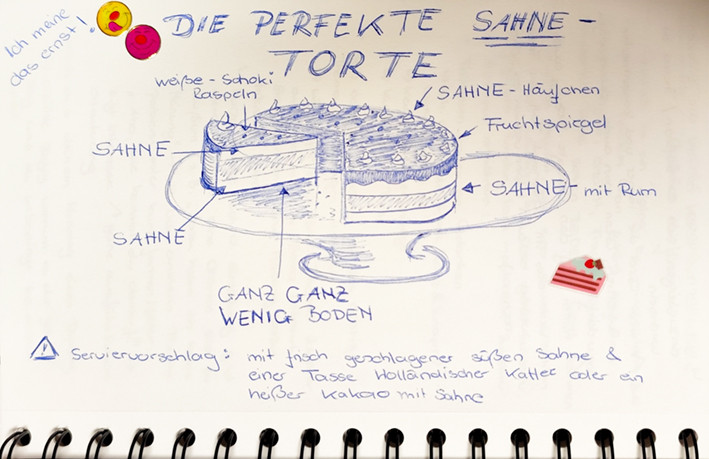 Ich meine
das ernst!
DIE PERFEKTE SAHNE-
TORTE
weiße-Schoki
Raspeln
SAHNE-Häufchen
Fruchtspiegel
SAHNE
SAHNE-mit Rum
SAHNE
GANZ GANZ
WENIG BODEN
Serviervorschlag: mit frisch geschlagener süßen Sahne &
einer Tasse Holländischer Kaffee oder ein
heißer Kakao mit Sahne